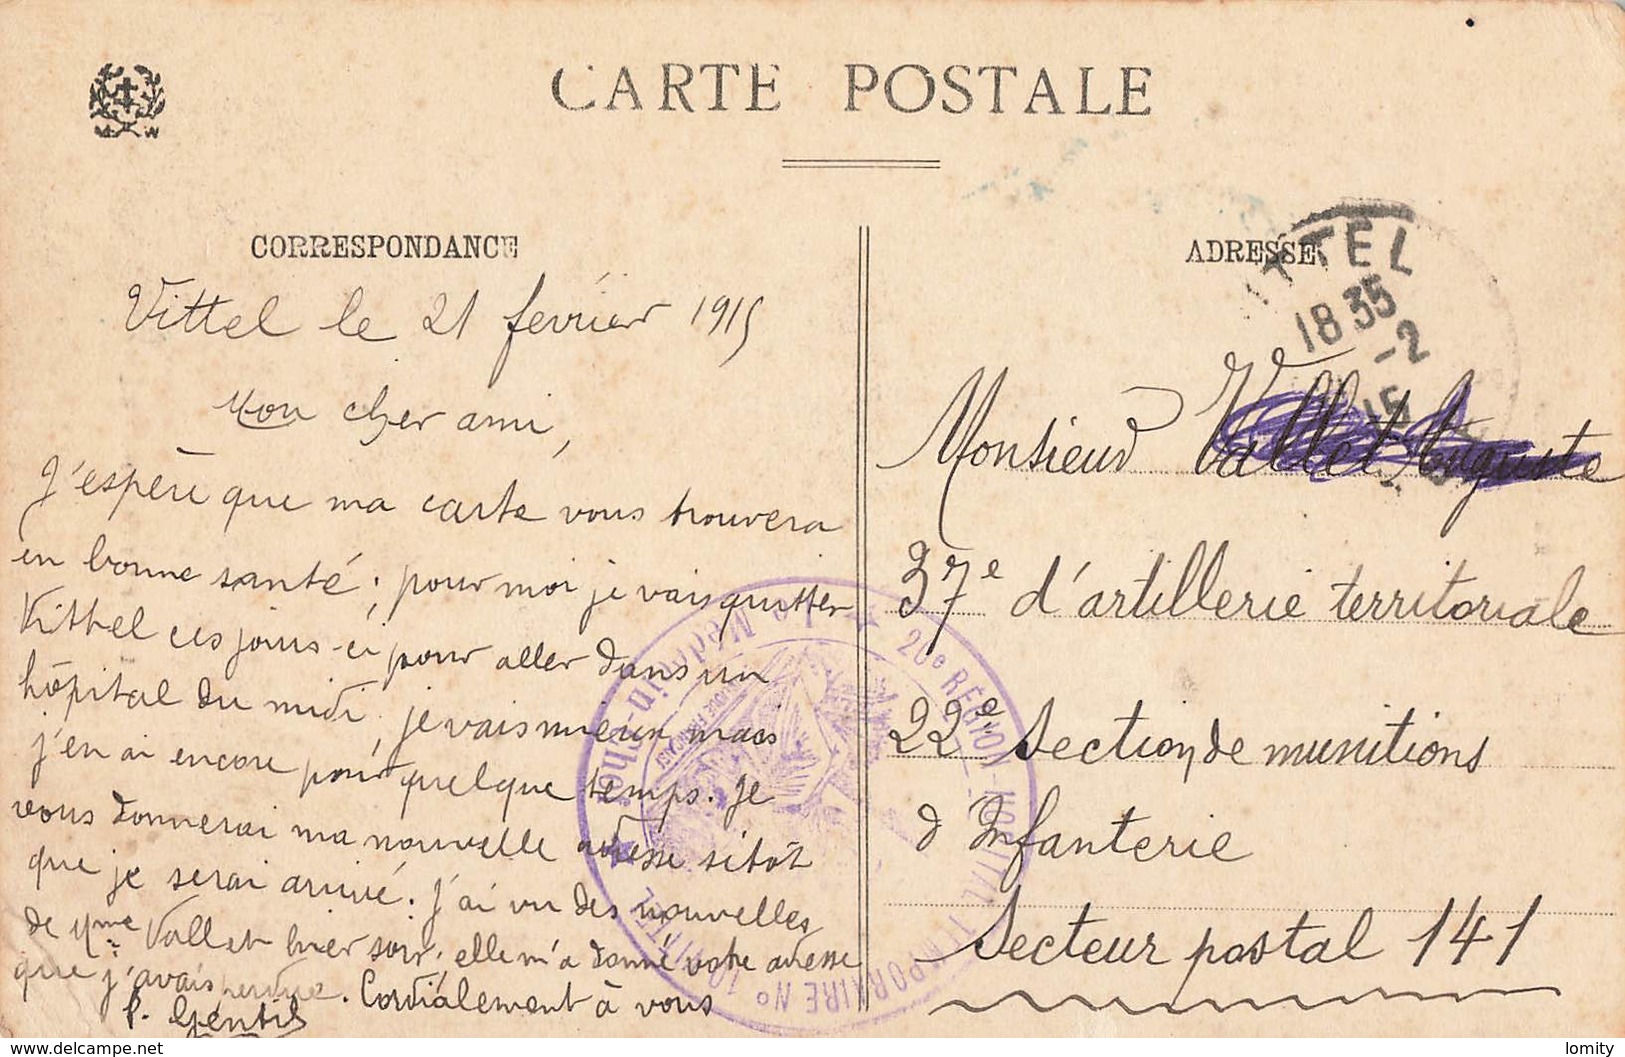 CARTE POSTALE
CORRESPONDANCE
Vittel le 21 février 1915
Mon cher ami,
J'espère que ma carte vous trouvera
en bonne santé ; pour moi je vais quitter
Vittel ces jours-ci pour aller dans un
hôpital du midi, je vais mieux mais
j'en ai encore pour quelque temps. Je
vous donnerai ma nouvelle adresse sitôt
que je serai arrivé. J'ai vu des nouvelles
de Mme Vallet hier soir, elle m'a donné votre adresse
que j'avais perdue. Cordialement à vous
P. Gentil
ADRESSE
ITTEL
18 35
-2
15
Monsieur Vallet Auguste
37e d'artillerie territoriale
22e Section de munitions
d'Infanterie
Secteur postal 141
20e RÉGION - HOPITAL TEMPORAIRE No 10 VITTEL
Le Médecin-Chef
delcampe.net
lomity